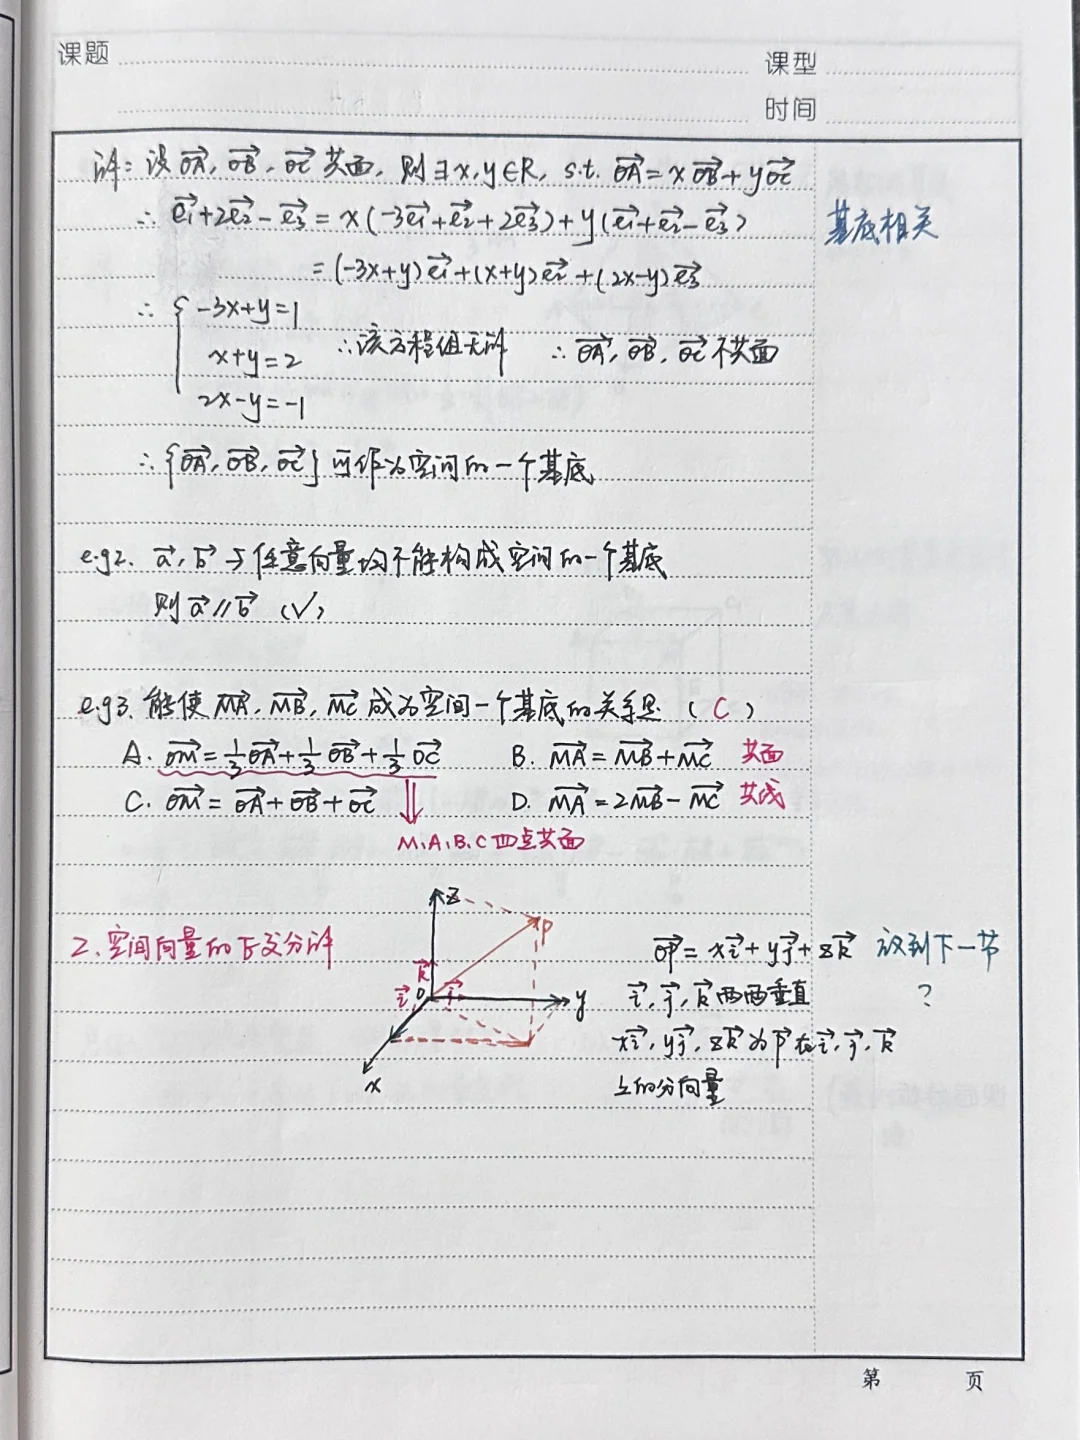 课题
课型
时间
解：设OA→, OB→, OC→共面，则∃x,y∈R, s.t. OA→=xOB→+yOC→
∴ e₁→+2e₂→-e₃→=x(-3e₁→+e₂→+2e₃→)+y(e₁→+e₂→-e₃→)
基底相关
=(-3x+y)e₁→+(x+y)e₂→+(2x-y)e₃→
∴ { -3x+y=1
x+y=2 ∴该方程组无解 ∴OA→, OB→, OC→不共面
2x-y=-1
∴{OA→, OB→, OC→}可作为空间的一个基底
e.g2. a→, b→与任意向量均不能构成空间的一个基底
则a→∥b→ (√)
e.g3. 能使MA→, MB→, MC→成为空间一个基底的关系是 (C)
A. OM→=1/3OA→+1/3OB→+1/3OC→ B. MA→=MB→+MC→ 共面
C. OM→=OA→+OB→+OC→ D. MA→=2MB→-MC→ 共线
M,A,B,C四点共面
2、空间向量的正交分解
z
P
k→
i→ O j→ y
x
OP→=xi→+yj→+zk→ 放到下一节
i→, j→, k→两两垂直 ?
xi→, yj→, zk→为P→在i→, j→, k→
上的分向量
第 页